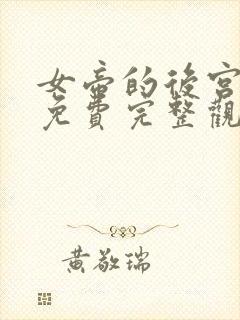 女帝的後宮
免費完整觀
黃敬瑞